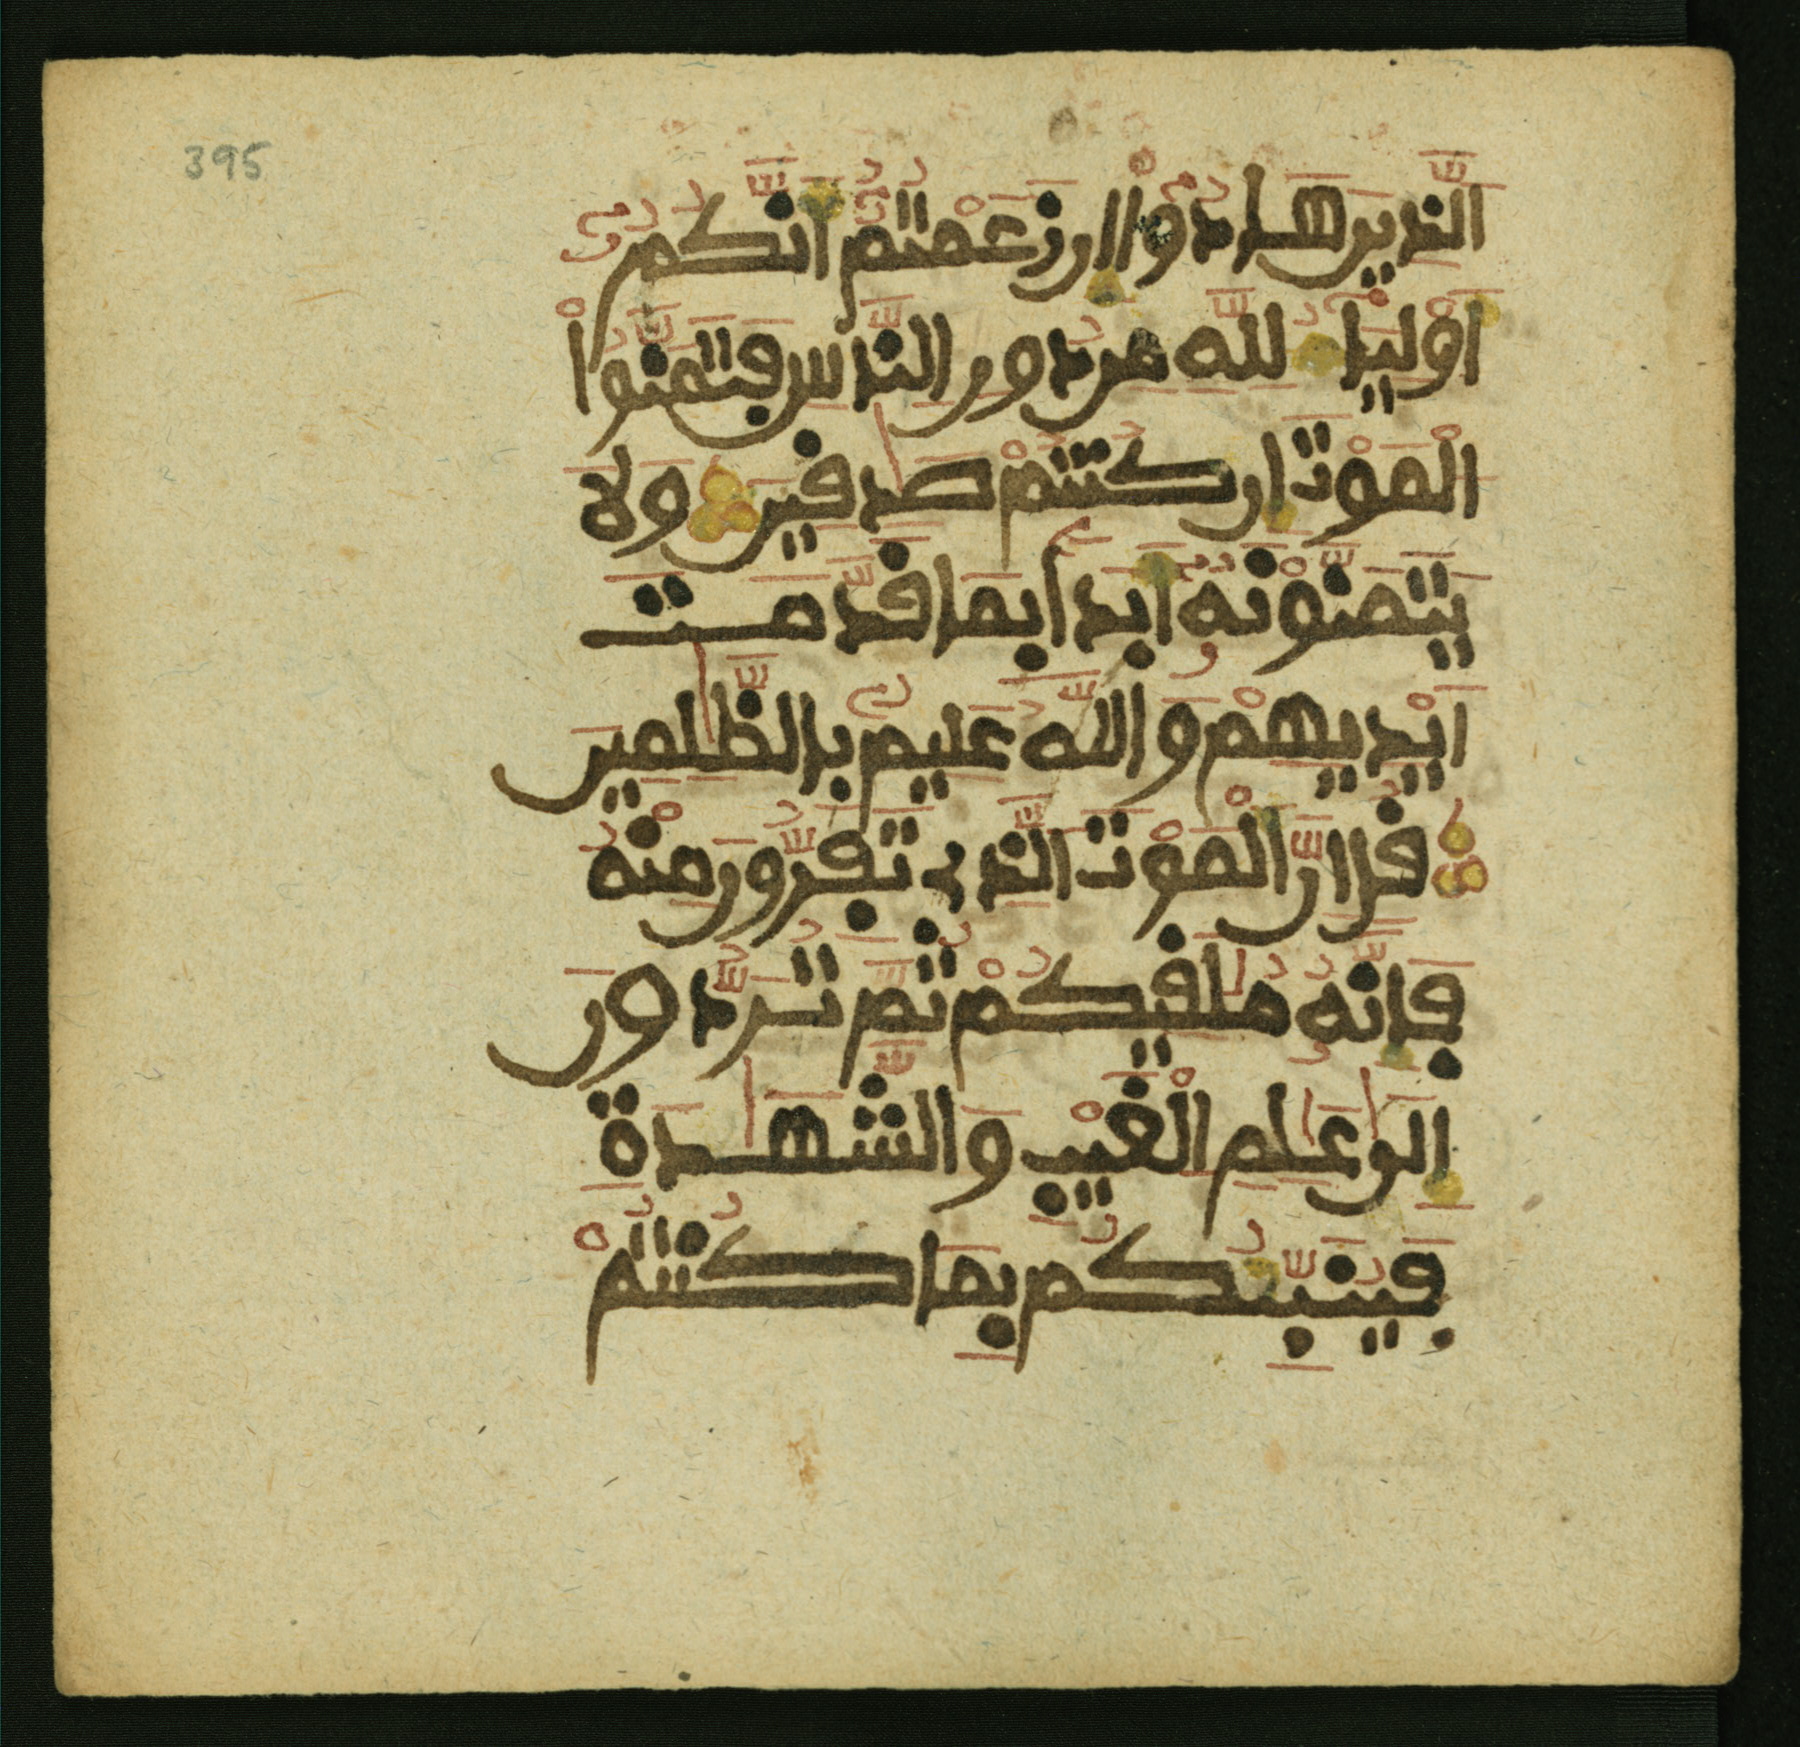 395
الَّذِينَ هَادُوا إِن زَعَمْتُمُ أَنَّكُمُ
أَوْلِيَاءُ لِلَّهِ مِن دُونِ النَّاسِ فَتَمَنَّوُا
الْمَوْتَ إِن كُنتُمْ صَٰدِقِينَ وَلَا
يَتَمَنَّوْنَهُ أَبَدًا بِمَا قَدَّمَتَ
اَيْدِيهِمْ وَاللَّهُ عَلِيمٌ بِالظَّٰلِمِينَ
قُلِ انَّ الْمَوْتَ الَّذِي تَفِرُّونَ مِنْهُ
فَإِنَّهُ مُلَٰقِيكُمْ ثُمَّ تُرَدُّونَ
إِلَىٰ عَٰلِمِ الْغَيْبِ وَالشَّهَٰدَةِ
فَيُنَبِّئُكُم بِمَا كُنتُمْ